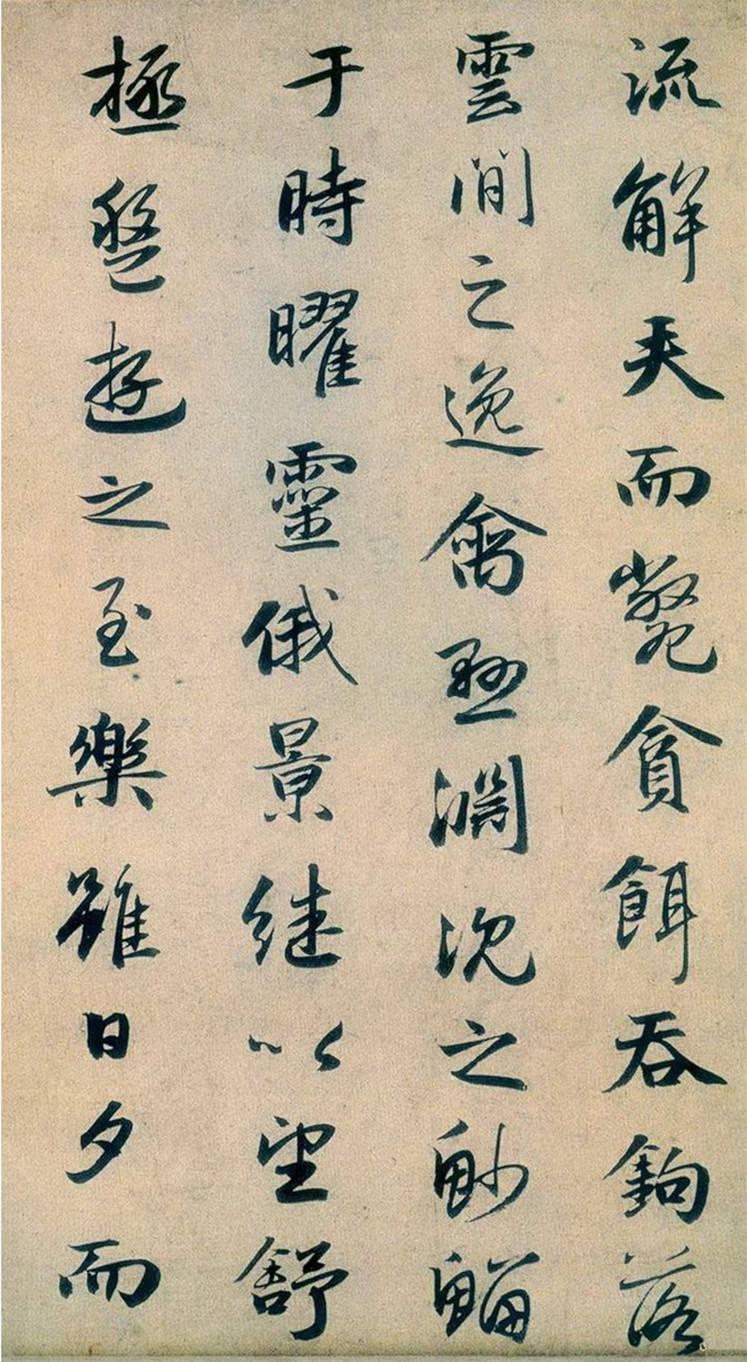 流觸矢而斃貪餌吞鉤落
雲間之逸禽懸淵沉之魦鰡
于時曜靈俄景継以望舒
極盤遊之至樂雖日夕而